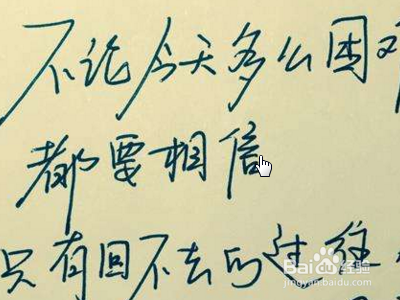 不论今天多么困难
都要相信
只有回不去的过往
Baidu 经验
jingyan.baidu.com